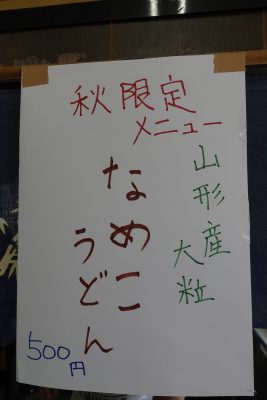 秋限定
メニュー
山形産
大粒
なめこ
うどん
500円